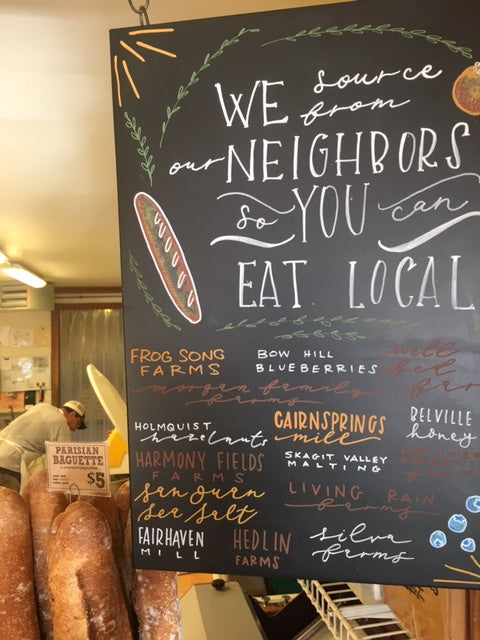 WE source from
our NEIGHBORS
So YOU can
EAT LOCAL
FROG SONG FARMS
BOW HILL BLUEBERRIES
well fed
morgan family farms
HOLMQUIST hazelnuts
CAIRNSPRINGS mill
BELLVILLE honey
HARMONY FIELDS FARMS
SKAGIT VALLEY MALTING
san juan sea salt
LIVING RAIN farms
FAIRHAVEN MILL
HEDLIN FARMS
silva farms
PARISIAN
BAGUETTE
$5